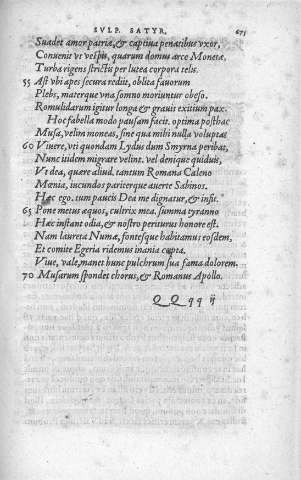 SVLP. SATYR. 675
Suadet amor patriæ, & captiua penatibus vxor,
Conuenit vt vespis, quarum domus arce Monetæ,
Turba rigens strictis per lutea corpora telis.
55 Ast vbi apes secura redit, oblita fauorum
Plebs, materque vna somno moriuntur obeso.
Romulidarum igitur longa & grauis exitium pax.
Hoc fabella modo pausam facit. optima posthac
Musa, velim moneas, sine qua mihi nulla voluptas
60 Viuere, vti quondam Lydus dum Smyrna peribat,
Nunc itidem migrare velint. vel denique quiduis,
Vt dea, quære aliud, tantum Romana Caleno
Mœnia, iucundos pariterque auerte Sabinos.
Hæc ego. tum paucis Dea me dignatur, & infit.
65 Pone metus æquos, cultrix mea, summa tyranno
Hæc instant odia, & nostro periturus honore est.
Nam laureta Numæ, fontesque habitamus eosdem,
Et comite Egeria ridemus inania cœpta.
Viue, vale, manet hunc pulchrum sua fama dolorem.
70 Musarum spondet chorus, & Romanus Apollo.
QQqq ij